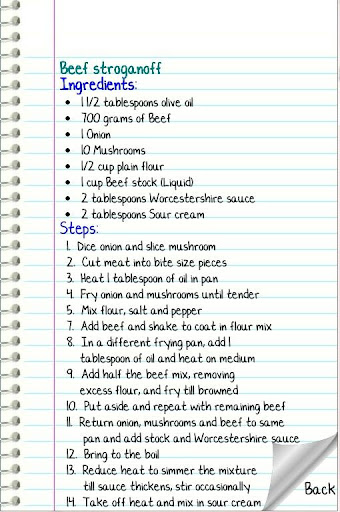 Beef stroganoff
Ingredients:
• 1 1/2 tablespoons olive oil
• 700 grams of Beef
• 1 Onion
• 10 Mushrooms
• 1/2 cup plain flour
• 1 cup Beef stock (Liquid)
• 2 tablespoons Worcestershire sauce
• 2 tablespoons Sour cream
Steps:
1. Dice onion and slice mushroom
2. Cut meat into bite size pieces
3. Heat 1 tablespoon of oil in pan
4. Fry onion and mushrooms until tender
5. Mix flour, salt and pepper
7. Add beef and shake to coat in flour mix
8. In a different frying pan, add 1
tablespoon of oil and heat on medium
9. Add half the beef mix, removing
excess flour, and fry till browned
10. Put aside and repeat with remaining beef
11. Return onion, mushrooms and beef to same
pan and add stock and Worcestershire sauce
12. Bring to the boil
13. Reduce heat to simmer the mixture
till sauce thickens, stir occasionally
14. Take off heat and mix in sour cream
Back